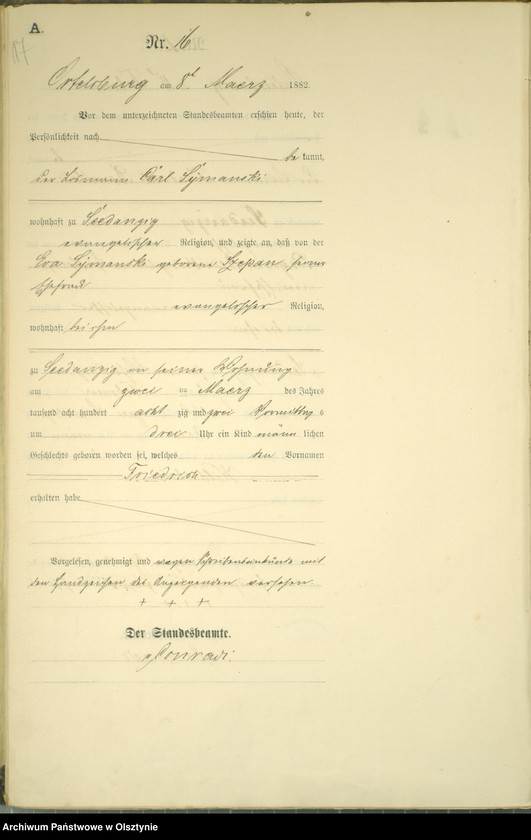 A.
Nr. 16
Ortelsburg am 8t Maerz 1882.
Vor dem unterzeichneten Standesbeamten erschien heute, der
Persönlichkeit nach
be kannt,
der Losmann Carl Symanski
wohnhaft zu Seedanzig
evangelischer Religion, und zeigte an, daß von der
Eva Symanski geborene Szepan seiner
Ehefrau
evangelischer Religion,
wohnhaft bei ihm
zu Seedanzig in seiner Wohnung
am zwei ten Maerz des Jahres
tausend acht hundert acht zig und zwei Vormittags
um drei Uhr ein Kind männ lichen
Geschlechts geboren worden sei, welches den Vornamen
Friedrich
erhalten habe
Vorgelesen, genehmigt und wegen Schreibensunkunde mit
dem Handzeichen des Anzeigenden versehen.
+ + +
Der Standesbeamte.
Conradi.
Archiwum Państwowe w Olsztynie